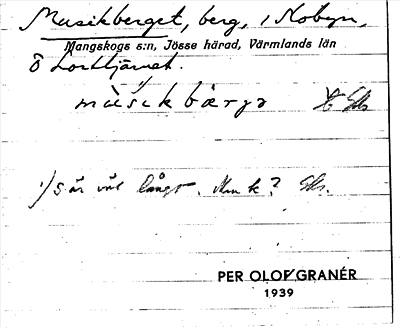 Musikberget, berg, i Nobyn,
Mangskogs s:n, Jösse härad, Värmlands län
ö Lorttjärnet.
1)
mùsikbärjə
1) s är väl långt. Men k?
PER OLOF GRANÉR
1939